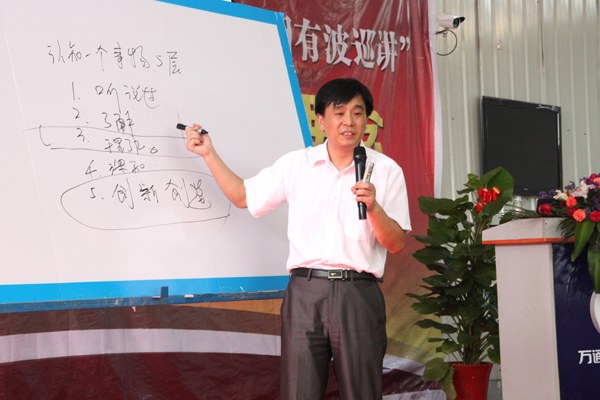 认知一个事物5层
1. 听说过
2. 了解
3. 理解
4.
5. 创新 创造
有波巡讲”
万通